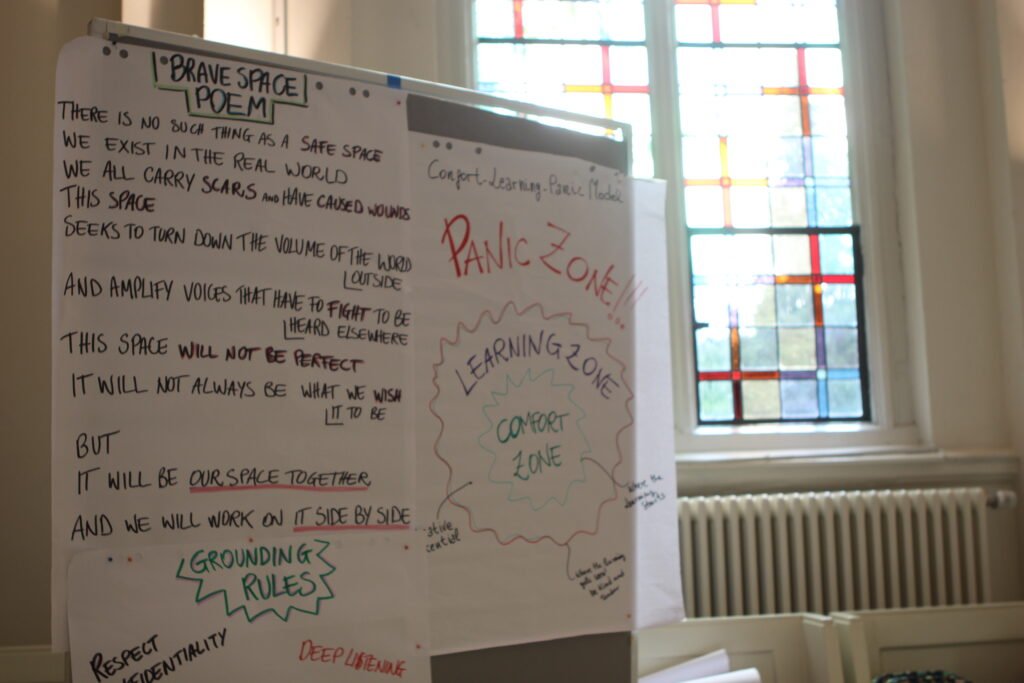 BRAVE SPACE
POEM
THERE IS NO SUCH THING AS A SAFE SPACE
WE EXIST IN THE REAL WORLD
WE ALL CARRY SCARS AND HAVE CAUSED WOUNDS
THIS SPACE
SEEKS TO TURN DOWN THE VOLUME OF THE WORLD
OUTSIDE
AND AMPLIFY VOICES THAT HAVE TO FIGHT TO BE
HEARD ELSEWHERE
THIS SPACE WILL NOT BE PERFECT
IT WILL NOT ALWAYS BE WHAT WE WISH
IT TO BE
BUT
IT WILL BE OUR SPACE TOGETHER
AND WE WILL WORK ON IT SIDE BY SIDE
GROUNDING
RULES
RESPECT
FIDENTIALITY
DEEP LISTENING
Comfort-Learning-Panic Model
PANIC ZONE!!!
LEARNING ZONE
COMFORT
ZONE
where the
learning
starts
ative
tential
where the learning
be kind and